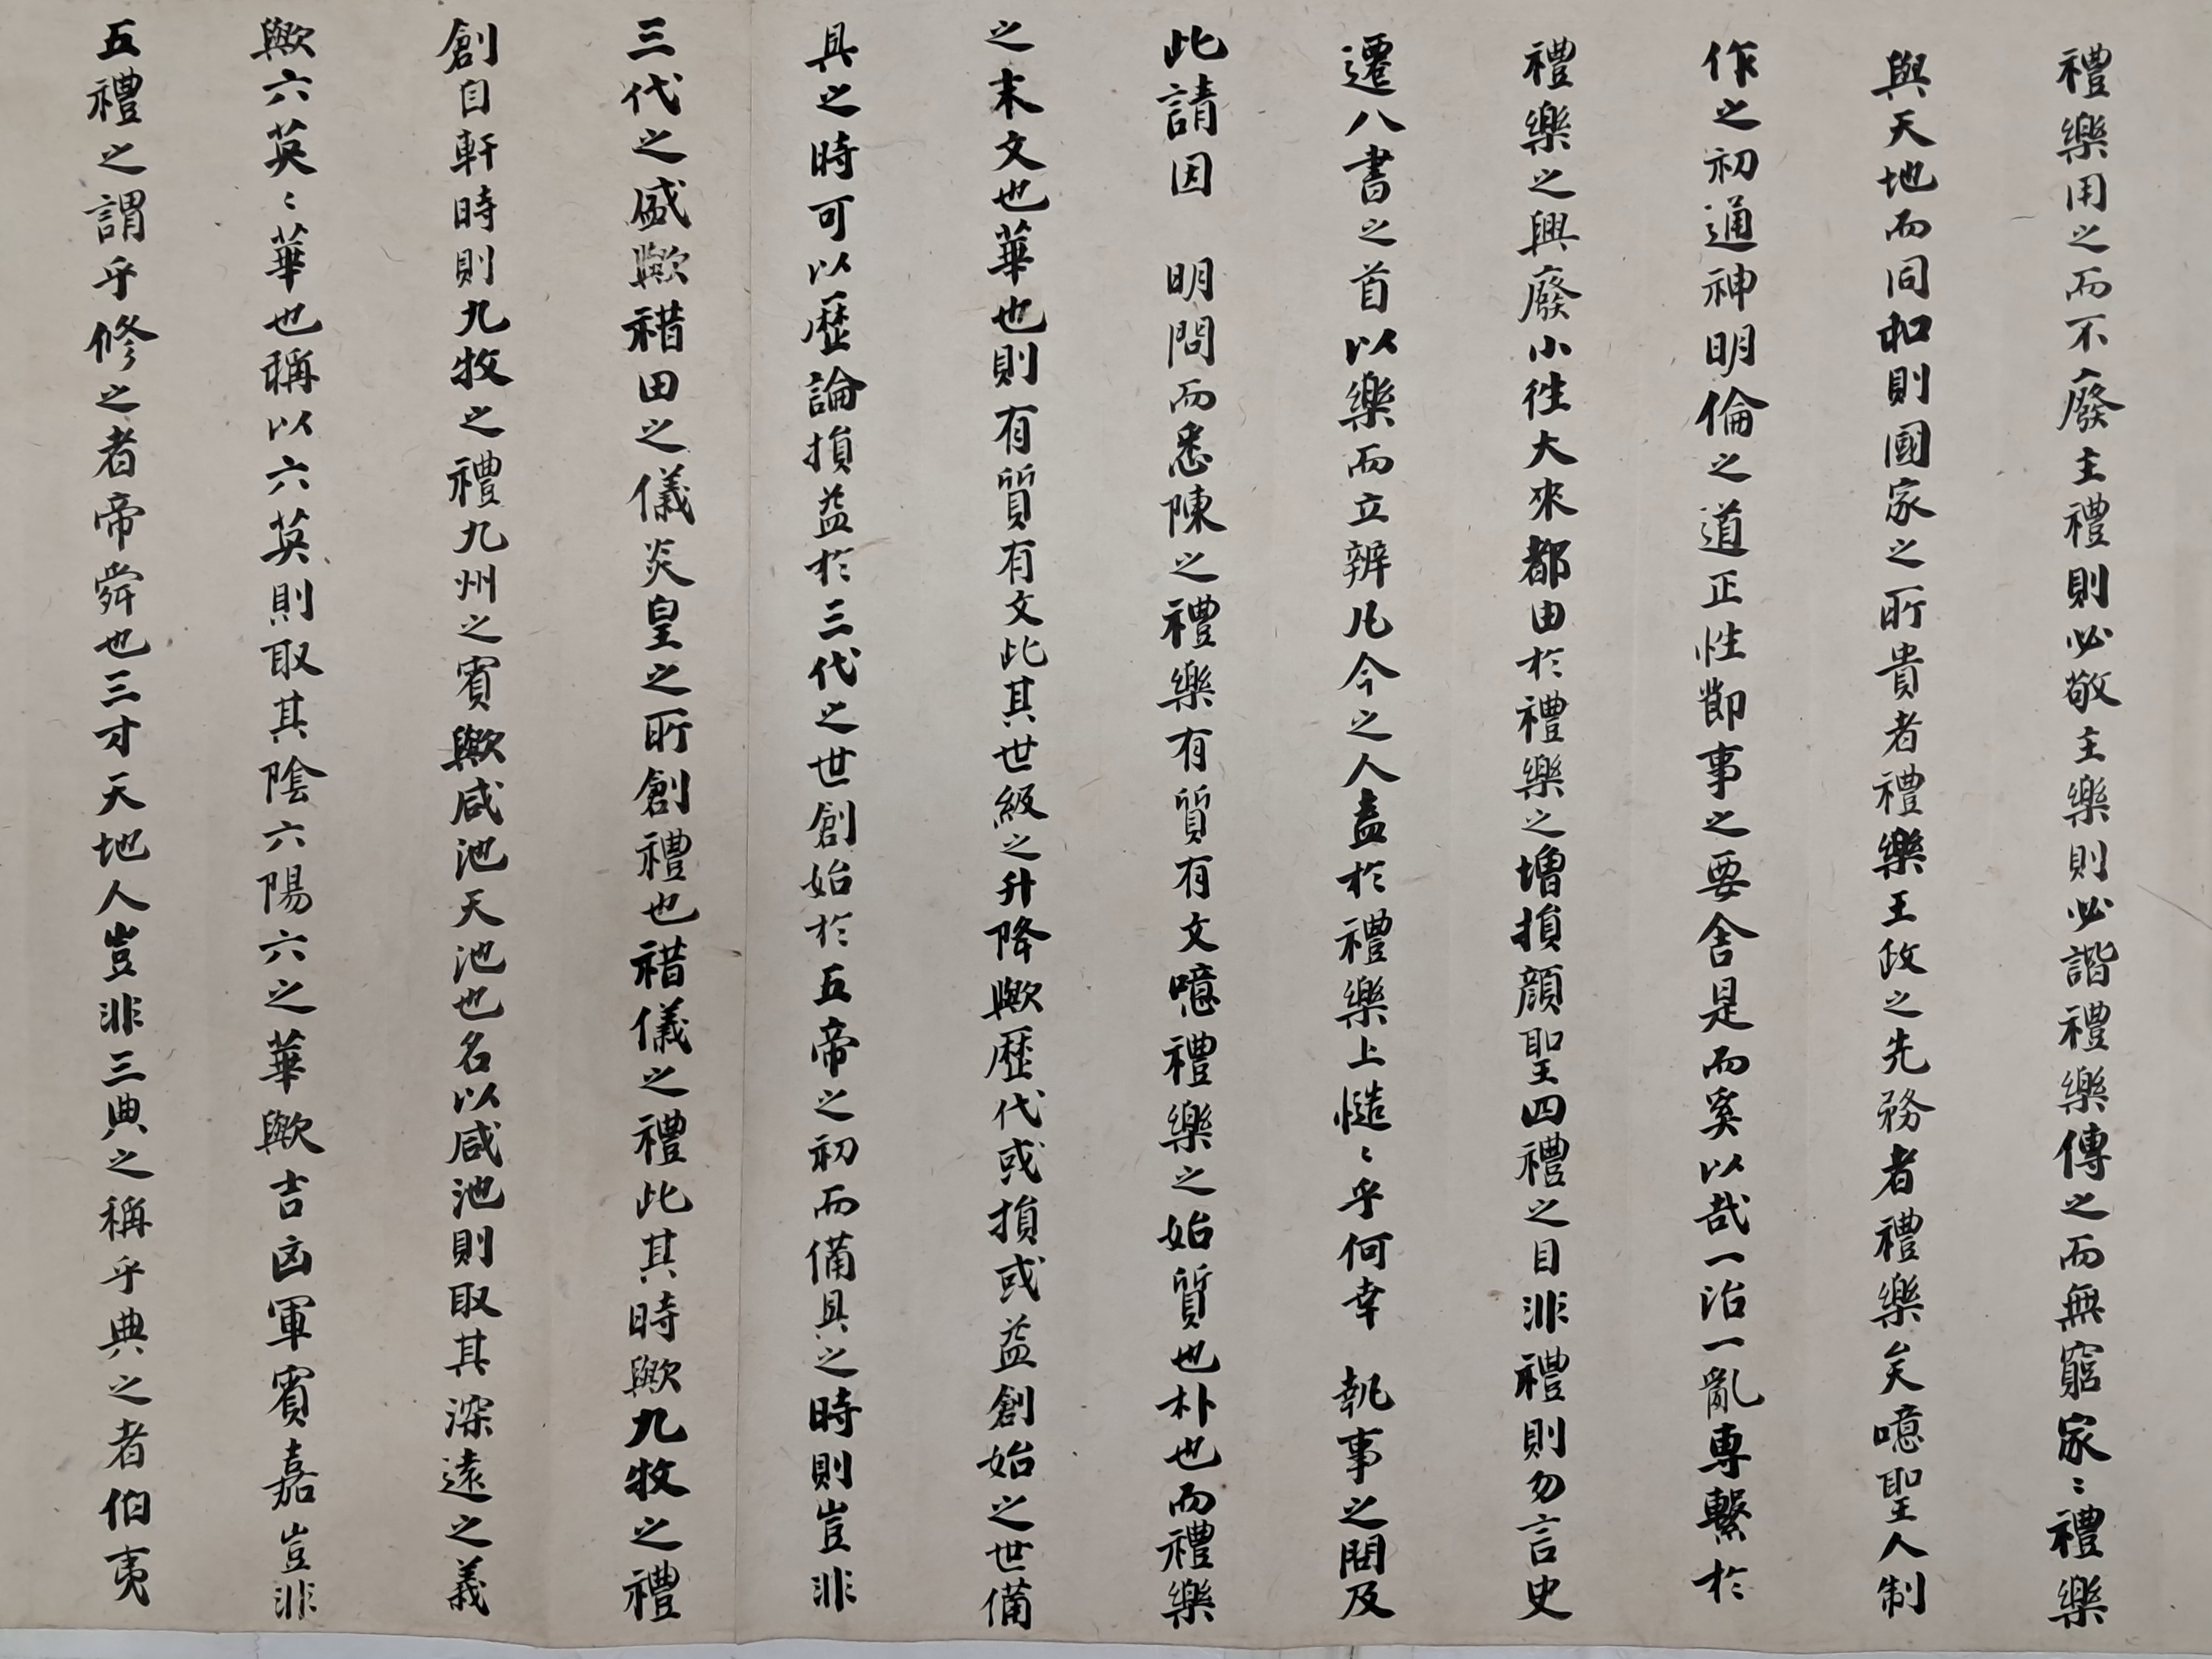 禮樂用之而不廢主禮則必敬主樂則必諧禮樂傳之而無窮家〻禮樂
與天地而同和則國家之所貴者禮樂王政之先務者禮樂矣噫聖人制
作之初通神明倫之道正性節事之要舍是而奚以哉一治一亂專繫於
禮樂之興廢小往大來都由於禮樂之增損顔聖四禮之目非禮則勿言史
遷八書之首以樂而立辨凡今之人盍於禮樂上慥〻乎何幸 執事之問及
此請因 明問而悉陳之禮樂有質有文噫禮樂之始質也朴也而禮樂
之末文也華也則有質有文此其世級之升降歟歷代或損或益創始之世備
具之時可以歷論損益於三代之世創始於五帝之初而備具之時則豈非
三代之盛歟䄍田之儀炎皇之所創禮也䄍儀之禮此其時歟九牧之禮
創自軒時則九牧之禮九州之賓歟咸池天池也名以咸池則取其深遠之義
歟六英〻華也稱以六英則取其陰六陽六之華歟吉凶軍賓嘉豈非
五禮之謂乎修之者帝舜也三才天地人豈非三典之稱乎典之者伯夷